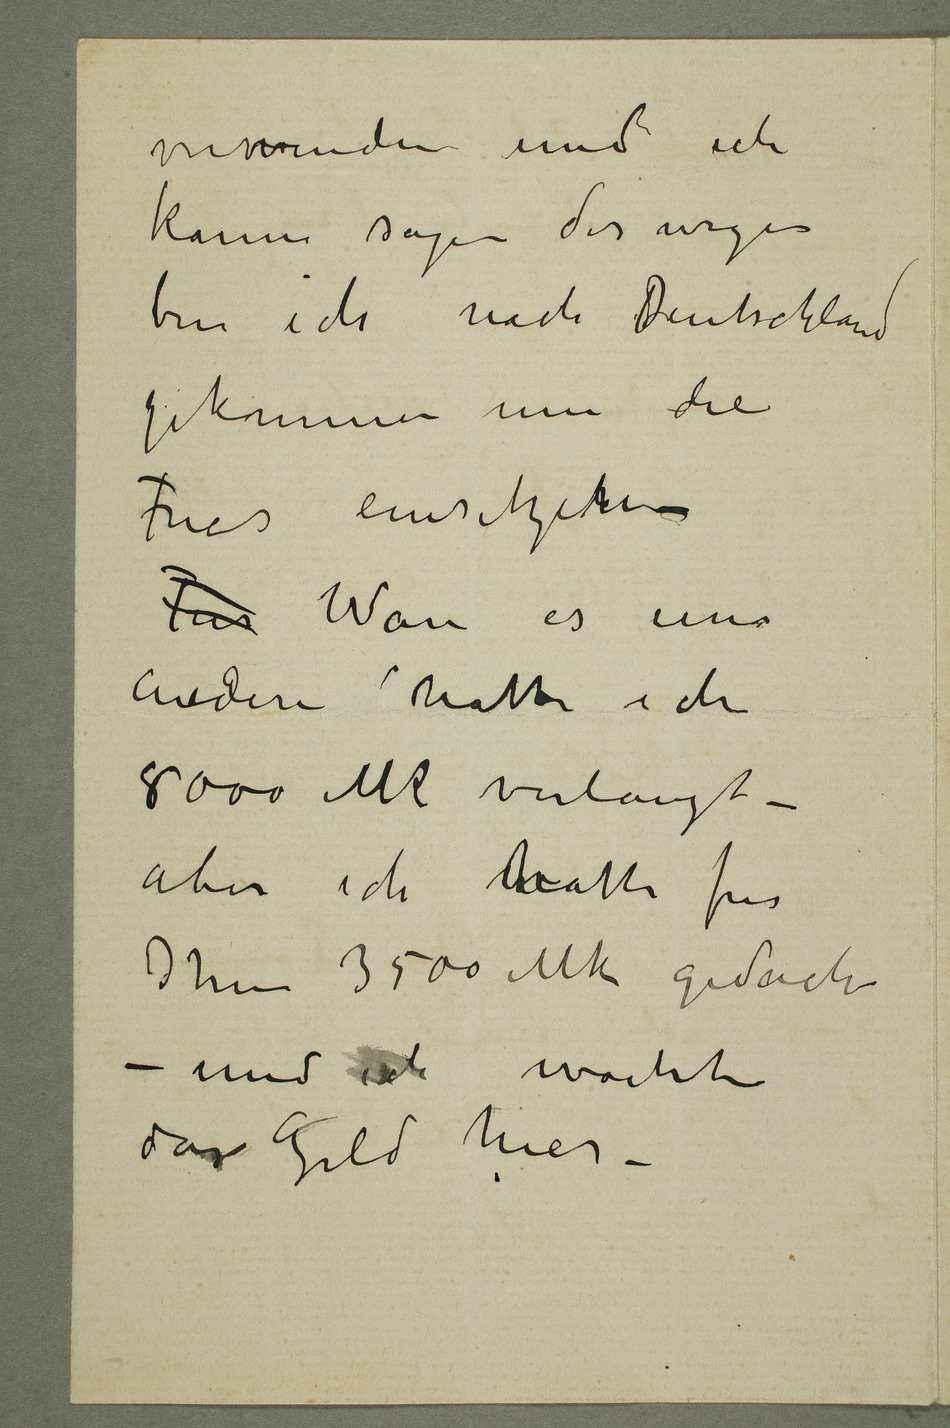 verwenden und ich
kann sagen deswegen
bin ich nach Deutschland
gekommen um die
Fries einsetzen
Fries Wäre es eine
andere hatte ich
8000 MK verlangt –
aber ich hatte fur
Ihnen 3500 Mk gedach
– und ich wachte
das Geld hier –